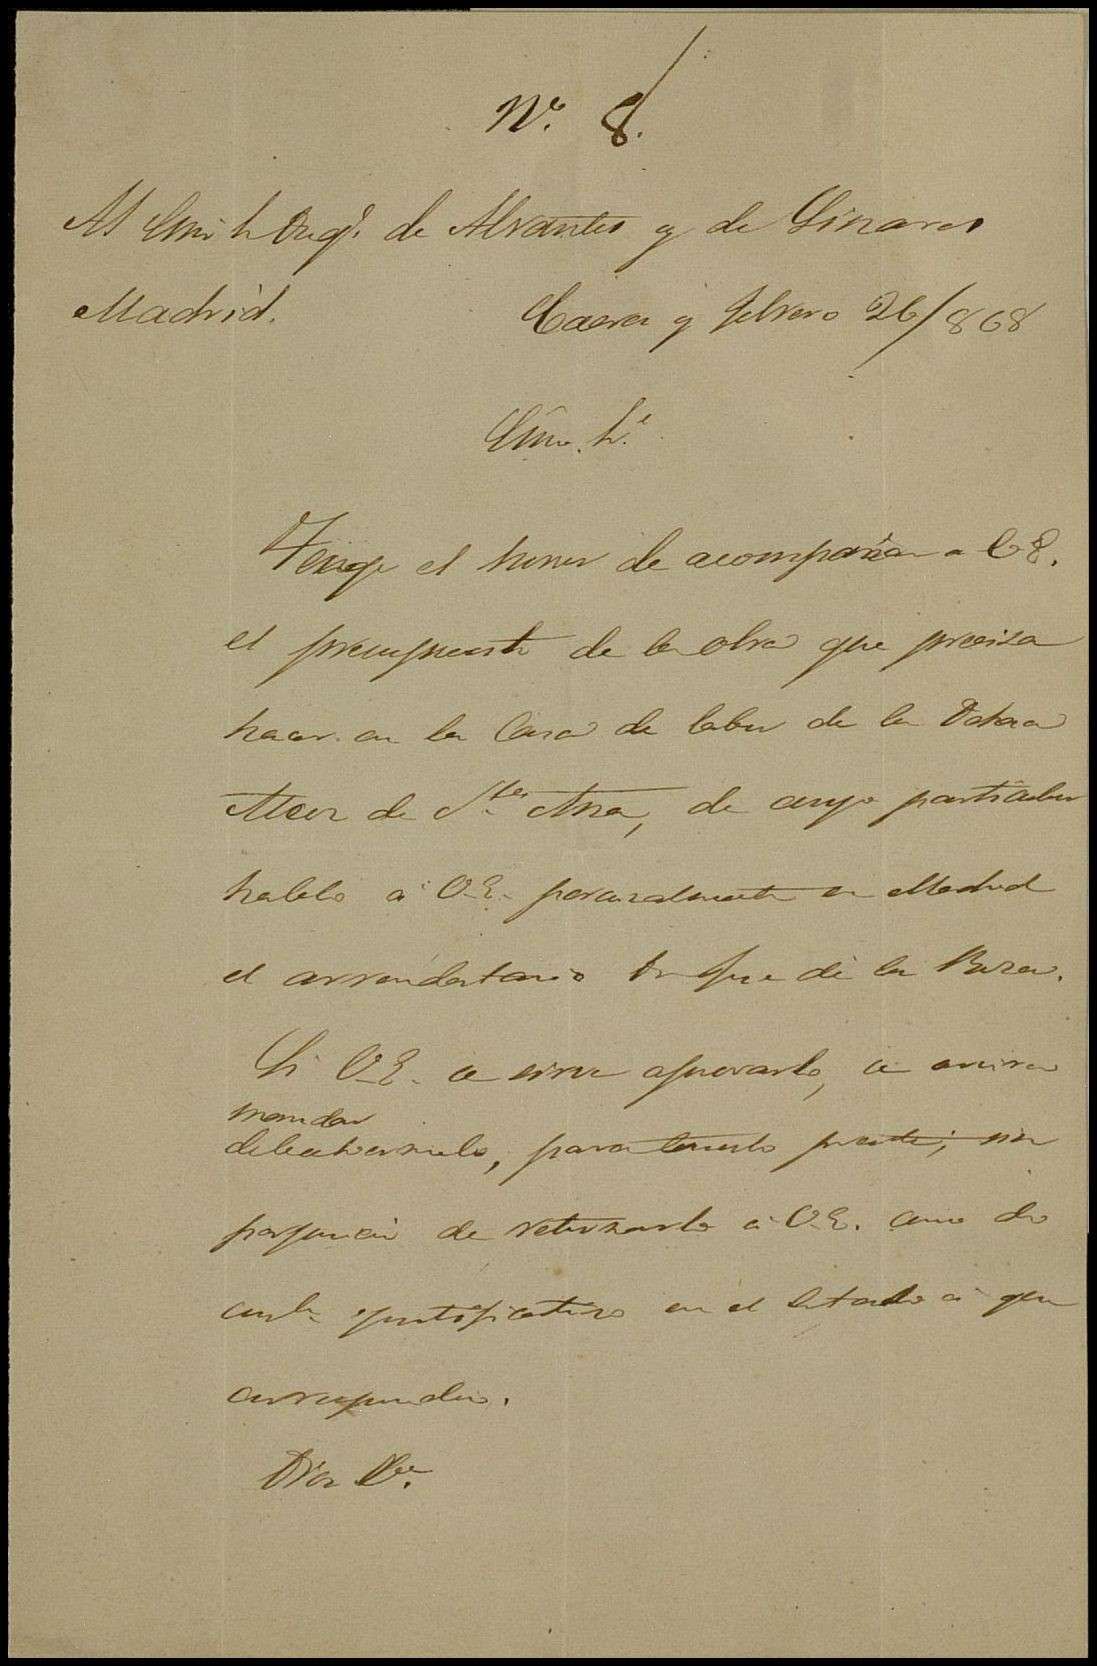 Nº. 8.
Al Exmo Sr Duqe. de Abrantes y de Linares
Madrid.
Caceres y febrero 26/868
Exmo. Sr.
Tengo el honor de acompañar a V.E.
el presupuesto de la obra que precisa
hacer en la Casa de labor de la Dehesa
de Sta Ana, de cuyo particular
hablo á V.E. personalmente en Madrid
el arrendatario Dn de la
Si V.E. se sirve aprovarlo, se servira
mandar
debolvermelo, para tenerlo presente; sin
perjuicio de retornarlo á V.E. como do
cumto justificativo en el Estado á que
corresponda.
Dios Va.